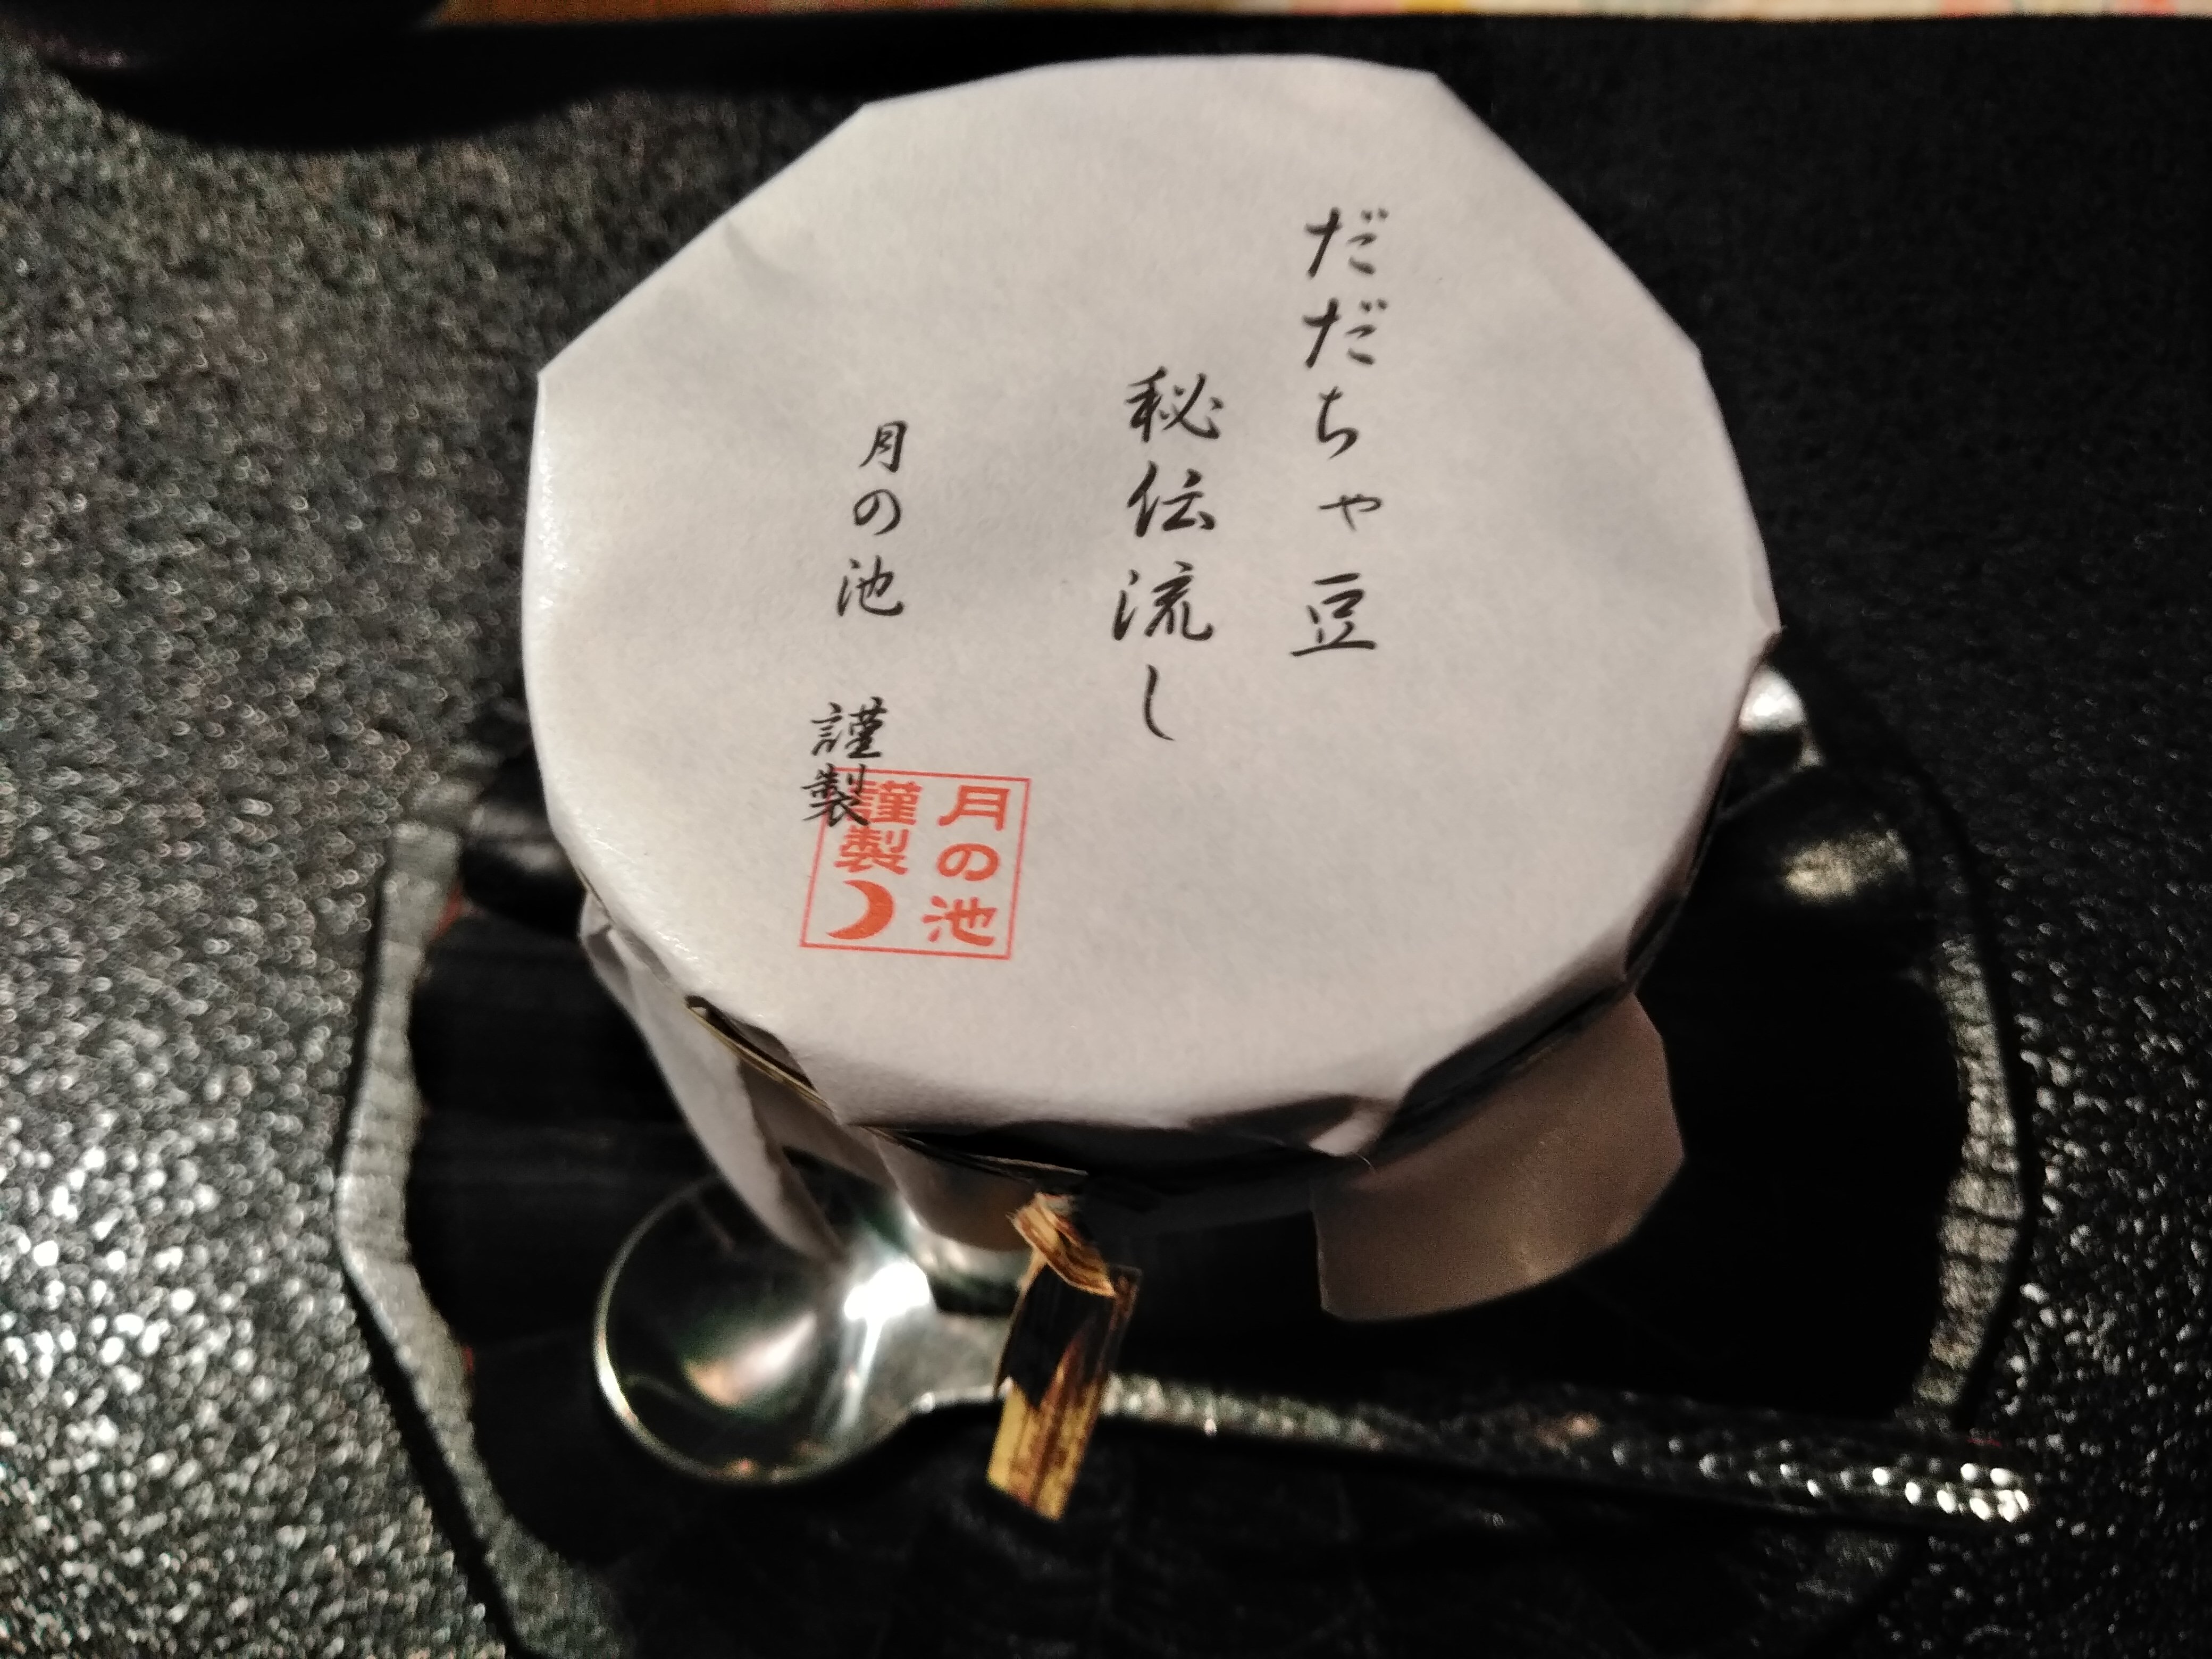 だだちゃ豆
秘伝流し
月の池 謹製
月の池
謹製